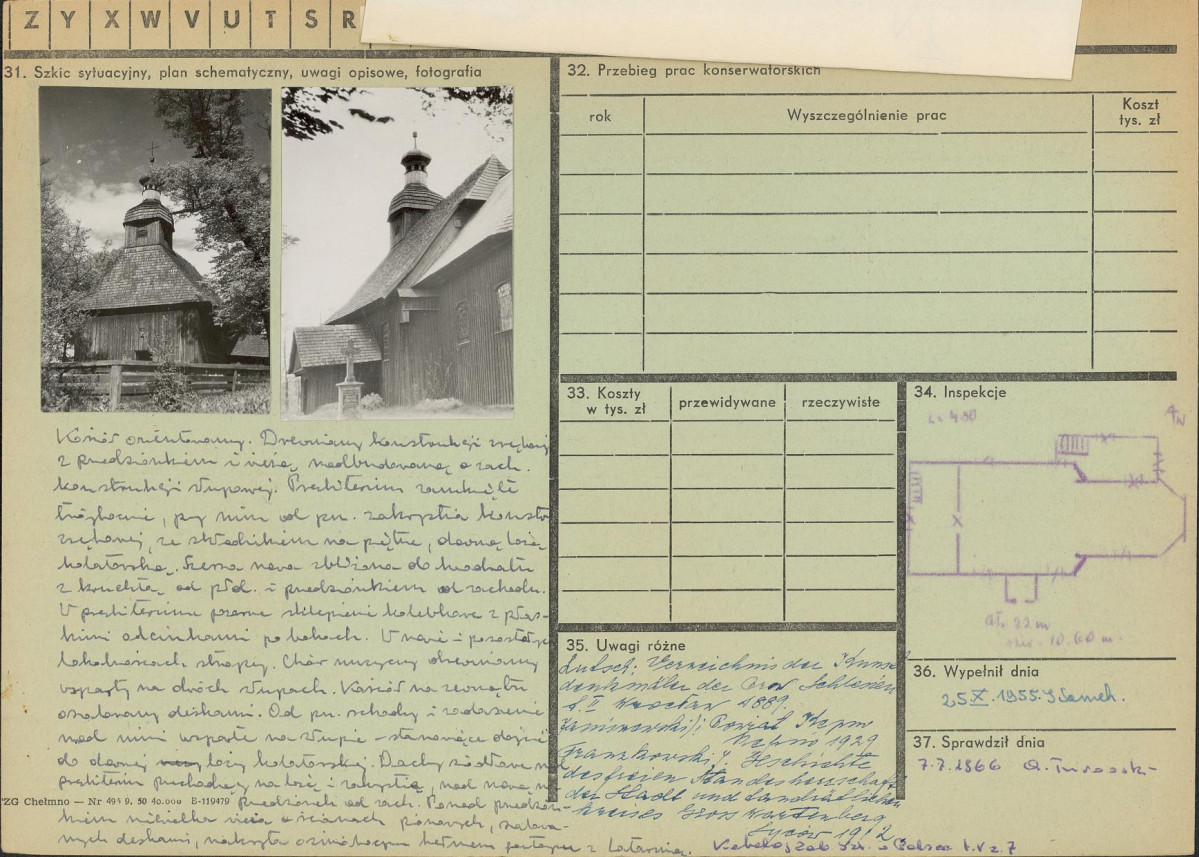 Z Y X W V U T S R
31. Szkic sytuacyjny, plan schematyczny, uwagi opisowe, fotografia
Kościół orientowany. Drewniany konstrukcji zrębowej
z przedsionkiem i wieżą nadbudowaną o zach.
konstrukcji słupowej. Prezbiterium zamknięte
trójbocznie, przy nim od pn. zakrystia konstr.
zrębowej, ze składzikiem na piętrze, dawną lożą
kolatorską. Szersza nawa zbliżona do kwadratu
z kruchtą od płd. i przedsionkiem od zachodu.
W prezbiterium pozorne sklepienie kolebkowe z płas-
kimi odcinkami po bokach. W nawie i pozostałych
lokalnościach stropy. Chór muzyczny drewniany
wsparty na dwóch słupach. Kościół na zewnątrz
oszalowany deskami. Od pn. schody i zadaszenie
nad nimi wsparte na słupie - stanowiące dojście
do dawnej loży kolatorskiej. Dachy siodłowe nad
prezbiterium przechodzący na lożę i zakrystię, nad nawą
przedsionek od zach. Ponad przedsion-
kiem niewielka wieża o ścianach pionowych, szalowa-
nych deskami, nakryta ośmiobocznym hełmem z latarnią.
ZG Chełmno — Nr 49 9. 50 40.000 E-119479
32. Przebieg prac konserwatorskich
rok
Wyszczególnienie prac
Koszt
tys. zł
33. Koszty
w tys. zł
przewidywane
rzeczywiste
34. Inspekcje
N
dł. 22 m
szer. 10.60 m.
35. Uwagi różne
Lutsch: Verzeichnis der Kunst
denkmäler der Prov. Schlesien
t. II Wrocław 1889.
Powiat Kępno
Kępno 1929
Franzkowski J. Geschichte
des freien Standesherrschaft
der Stadt und Landrätlichen
Kreises Gross Wartenberg
Syców 1912
Katalog Zab. Szt. w Polsce t. V z. 7
36. Wypełnił dnia
25 X. 1955.
37. Sprawdził dnia
7.7.1966